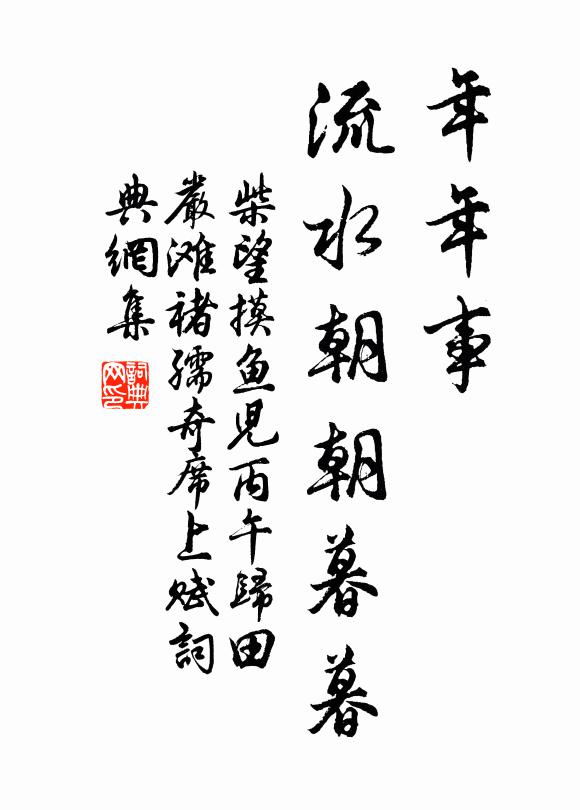 年年事
流水朝朝暮暮
柴望摸鱼児丙午歸田
嚴滩褚孺奇席上赋詞
典網集
詞典
网印